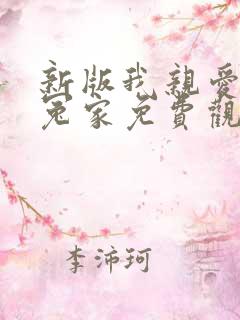 新版我親愛
冤家免費觀
李沛珂